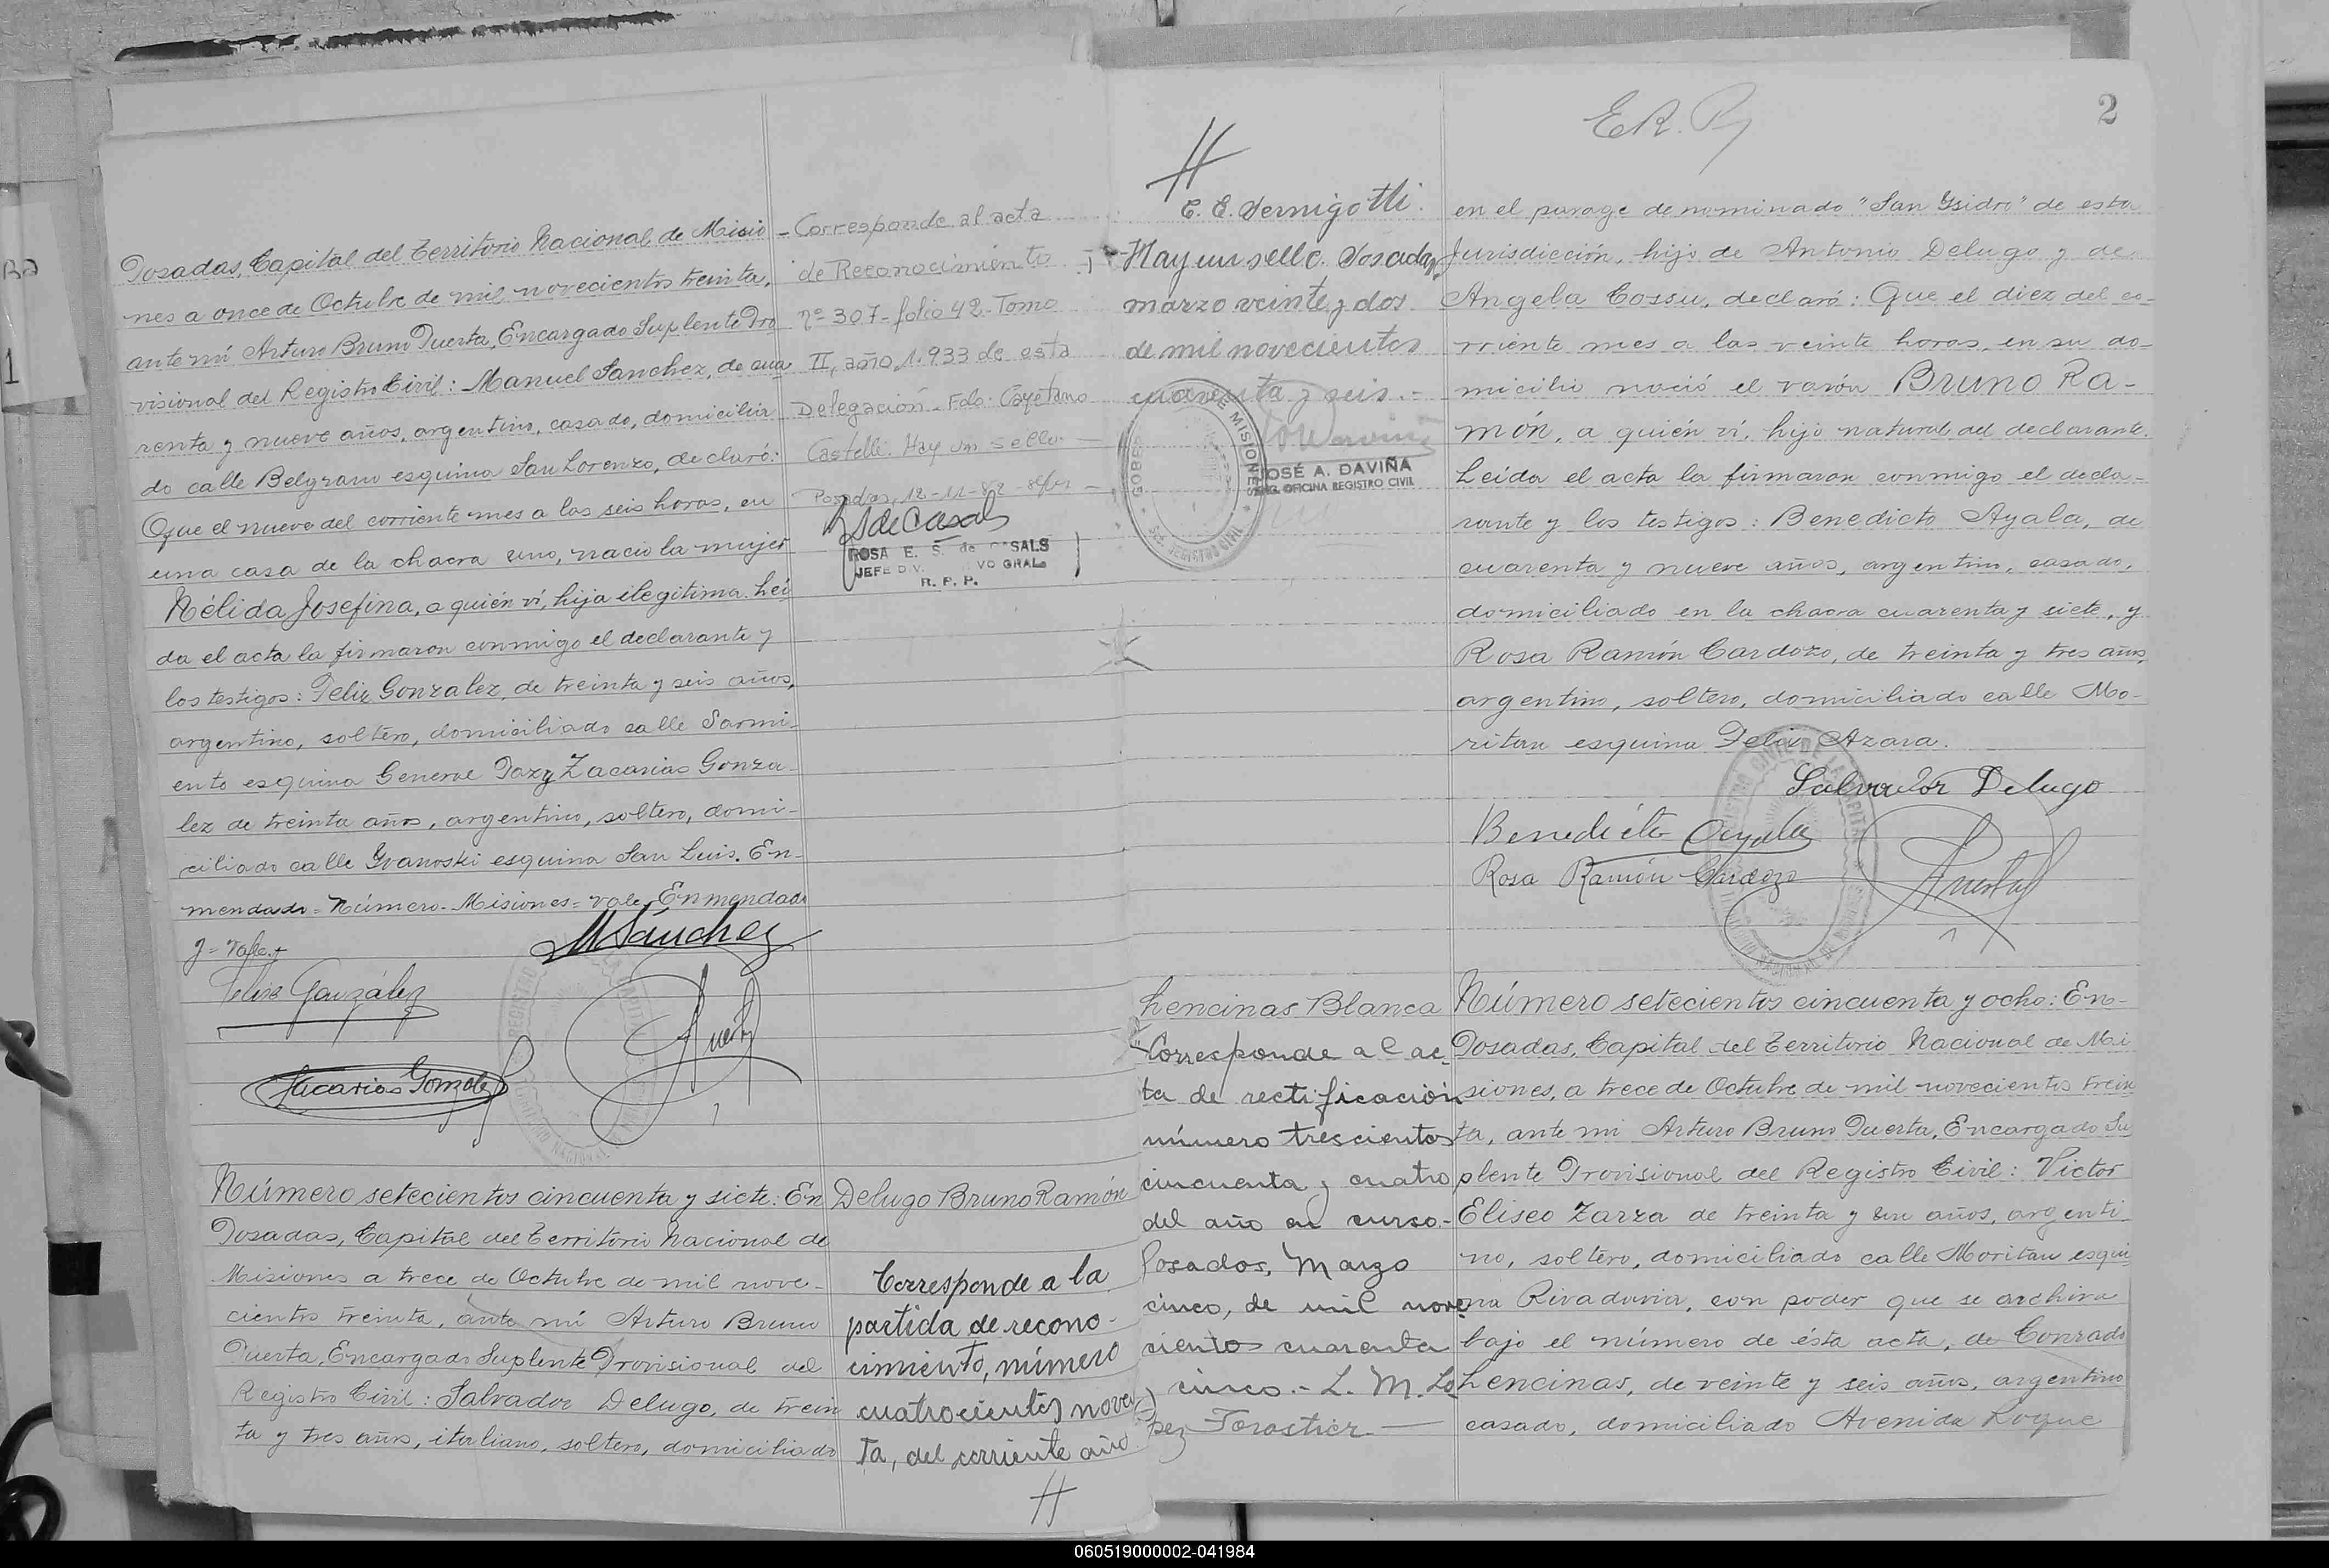 Posadas, Capital del Territorio Nacional de Misio
nes a once de Octubre de mil novecientos treinta,
ante mi Arturo Bruno Puerta, Encargado Suplente Pro
visional del Registro Civil: Manuel Sanchez, de cua
renta y nueve años, argentino, casado, domicilia
do calle Belgrano esquina San Lorenzo, declaró:
Que el nueve del corriente mes a las seis horas, en
una casa de la chacra uno, nació la mujer
Nélida Josefina, a quién ví, hija ilegitima. Leí
da el acta la firmaron conmigo el declarante y
los testigos: Felix Gonzalez, de treinta y seis años,
argentino, soltero, domiciliado calle Sarmi-
ento esquina General Paz y Zacarias Gonza-
lez de treinta años, argentino, soltero, domi-
ciliado calle Ivanoski esquina San Luis. En-
mendado = Número - Misiones = vale. Enmendado
y = vale.
MSánchez
Felix González
Zacarias Gonzalez
Puerta
Correspande al acta
de Reconocimiento
nº 307 - folio 42 - Tomo
II, año 1.933 de esta
Delegación - Fdo: Cayetano
Castelli. Hay un sello
Posadas, 12-11-82
ROSA E. S. de CASALS
JEFE DIV. VO GRAL.
R. P. P.
Número setecientos cincuenta y siete: En
Posadas, Capital del Territorio Nacional de
Misiones a trece de Octubre de mil nove-
cientos treinta, ante mí Arturo Bruno
Puerta, Encargado Suplente Provisional del
Registro Civil: Salvador Delugo, de trein
ta y tres años, italiano, soltero, domiciliado
Delugo Bruno Ramón
Corresponde a la
partida de recono-
cimiento, número
cuatrocientos noven
ta, del corriente año
#
#
C. E. Vernigotti.
Hay un sello. Posadas,
marzo veinte y dos
de mil novecientos
cuarenta y seis.-
JOSÉ A. DAVIÑA
ENC. OFICINA REGISTRO CIVIL
E.R.
2
en el parage denominado "San Ysidro" de esta
Jurisdicción, hijo de Antonio Delugo y de
Angela Cossu, declaró: Que el diez del co-
rriente mes a las veinte horas, en su do-
micilio nació el varón Bruno Ra-
món, a quién ví, hijo natural del declarante.
Leída el acta la firmaron conmigo el decla-
rante y los testigos: Benedicto Ayala, de
cuarenta y nueve años, argentino, casado,
domiciliado en la chacra cuarenta y siete, y
Rosa Ramón Cardozo, de treinta y tres años,
argentino, soltero, domiciliado calle Mo-
ritan esquina Felix Azara.
Salvador Delugo
Benedicto Ayala
Rosa Ramón Cardozo
Puerta
Lencinas Blanca
"Corresponde al ac-
ta de rectificación
número trescientos
cincuenta y cuatro
del año en curso.-
Posadas, Marzo
cinco, de mil nove
cientos cuarenta
y cinco.- L. M. Lo
pez Forastier
Número setecientos cincuenta y ocho: En
Posadas, Capital del Territorio Nacional de Mi
siones, a trece de Octubre de mil novecientos trein
ta, ante mi Arturo Bruno Puerta, Encargado Su
plente Provisional del Registro Civil: Victor
Eliseo Zarza de treinta y un años, argenti-
no, soltero, domiciliado calle Moritan esqui
na Rivadavia, con poder que se archiva
bajo el número de ésta acta, de Conrado
Lencinas, de veinte y seis años, argentino
casado, domiciliado Avenida Roque
060519000002-041984